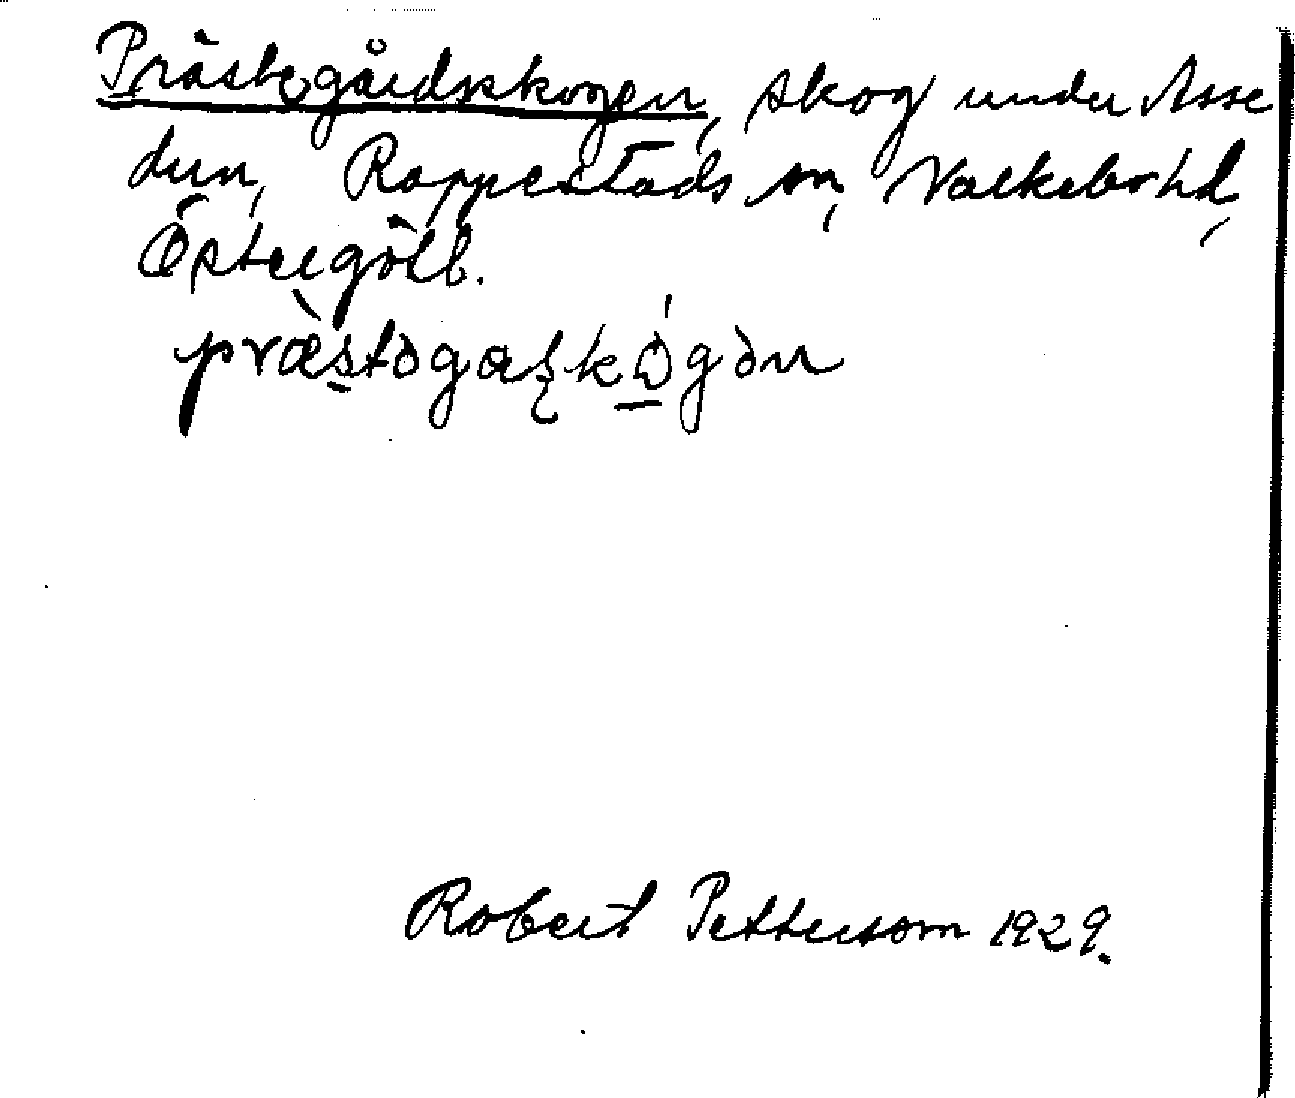 Prästegårdsskogen, skog under Asse
dun, Rappestads sn, Valkebo hd,
Östergötl.
præ̀stəgaʂkó̱gən
Robert Pettersson 1929.